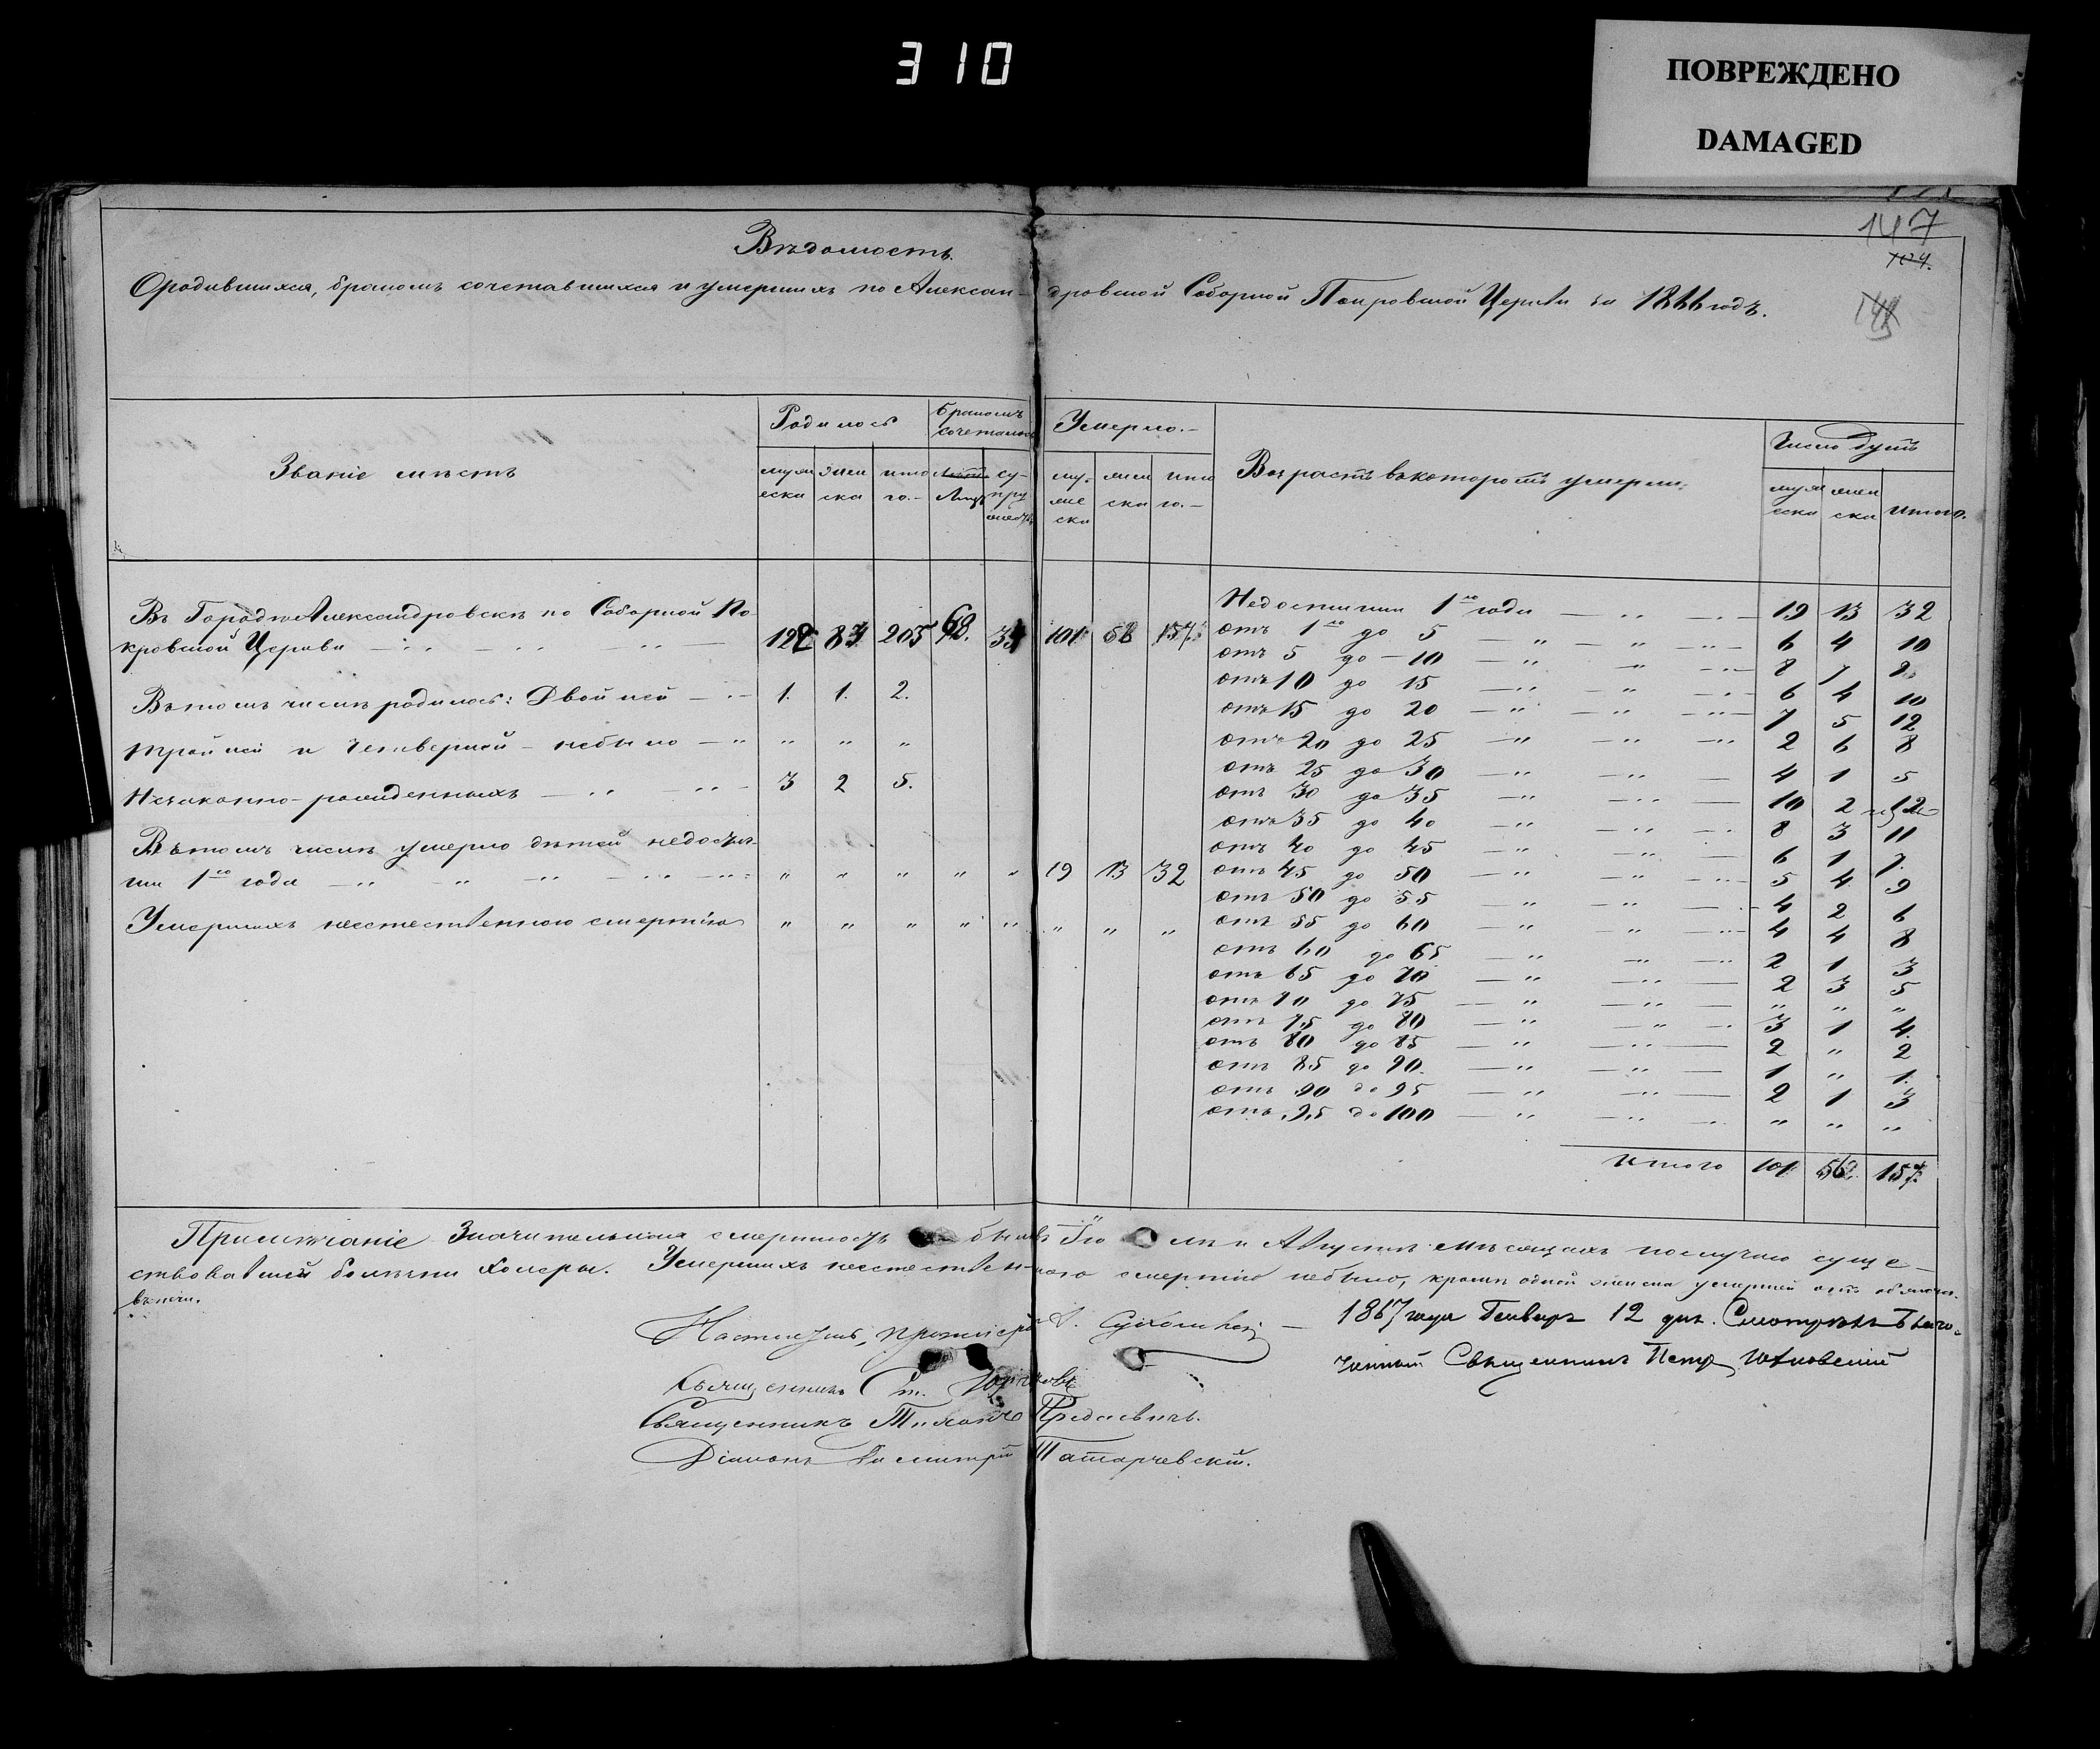 310
ПОВРЕЖДЕНО
DAMAGED
147
104.
Вѣдомость.
О родившихся, бракомъ сочетавшихся и умершихъ по Александровской Соборной Покровской Церкви за 1866 годъ.
Званіе мѣстъ
Родилось
Бракомъ сочеталось
Умерло.
Возрастъ въ которомъ умерли
Число душъ
мужеска женска итого.
Лицъ супружествъ
мужеска женска итого.
мужеска женска итого.
Въ Городѣ Александровскѣ по Соборной Покровской Церкви 205 68. 34 101 157.
Въ томъ числѣ родилось: Двойней 1. 1. 2.
тройней и четверней - небыло " " "
Незаконно-рожденныхъ 3 2 5.
Въ томъ числѣ умерло дѣтей недостигши 1го года " " " " " 19 13 32
Умершихъ неестественною смертію " " " " " " " "
Недостигши 1го года 19 13 32
отъ 1го до 5 6 4 10
отъ 5 до 10 8
отъ 10 до 15 6 4 10
отъ 15 до 20 7 5 12
отъ 20 до 25 2 6 8
отъ 25 до 30 4 1 5
отъ 30 до 35 10 2 12
отъ 35 до 40 8 3 11
отъ 40 до 45 6 1 7.
отъ 45 до 50 5 4 9
отъ 50 до 55 4 2 6
отъ 55 до 60 4 4 8
отъ 60 до 65 2 1 3
отъ 65 до 70 2 3 5
отъ 70 до 75 " " "
отъ 75 до 80 3 1 4.
отъ 80 до 85 2 " 2
отъ 85 до 90. 1 " 1.
отъ 90 до 95 2 1 3
отъ 95 до 100 " " "
Итого 101 56. 157.
Примѣчаніе Значительная смертность была въ Августѣ мѣсяцахъ по случаю суще-
ствовавшей болѣзни Холеры. Умершихъ неестественною смертію небыло, кромѣ одной умершей отъ
Настоятель, протоіерей
1867 года Генваря 12 дня. Смотрѣлъ Благо-
чинный Священникъ Петръ
Священникъ
Священникъ Тихонъ
Діаконъ Димитрій Татарчевскій.